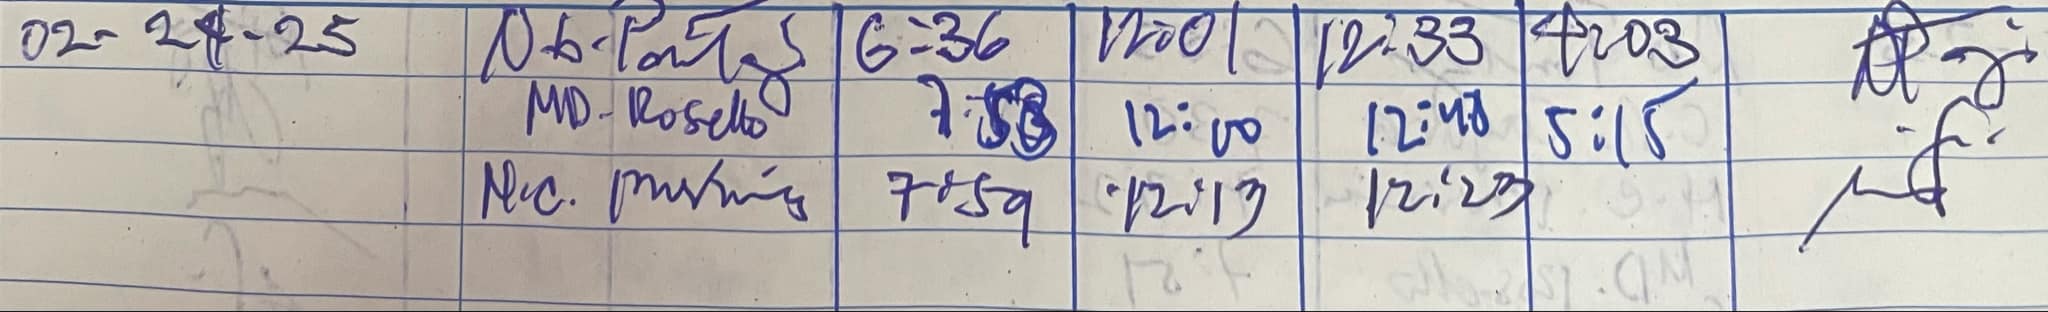 02-24-25 6:36 12:01 12:33 4:03
MD-Rosello 7:58 12:00 12:48 5:15
N.C. 7:59 12:13 12:23